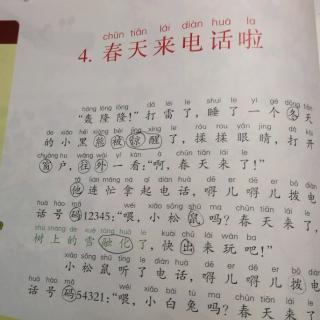 chūn tiān lái diàn huà la
4. 春天来电话啦
hōng lóng lóng dǎ léi le shuì le yí gè dōng tiān
“轰隆隆!”打雷了,睡了一个冬天
de xiǎo hēi xióng bèi jīng xǐng le róu rou yǎn jing dǎ kāi
的小黑熊被惊醒了,揉揉眼睛,打开
chuāng hu wǎng wài yí kàn a chūn tiān lái le
窗户,往外一看:“啊,春天来了!”
tā lián máng ná qǐ diàn huà dē er dē er bō diàn
他连忙拿起电话,嘚儿嘚儿拨电
huà hào mǎ wéi xiǎo sōng shǔ ma chūn tiān lái le
话号码12345:“喂,小松鼠吗?春天来了,
shù shàng de xuě róng huà le kuài chū lái wán ba
树上的雪融化了,快出来玩吧!”
xiǎo sōng shǔ tīng le diàn huà dē er dē er bō diàn
小松鼠听了电话,嘚儿嘚儿拨电
huà hào mǎ wéi xiǎo bái tù ma chūn tiān lái le
话号码54321:“喂,小白兔吗?春天来了,